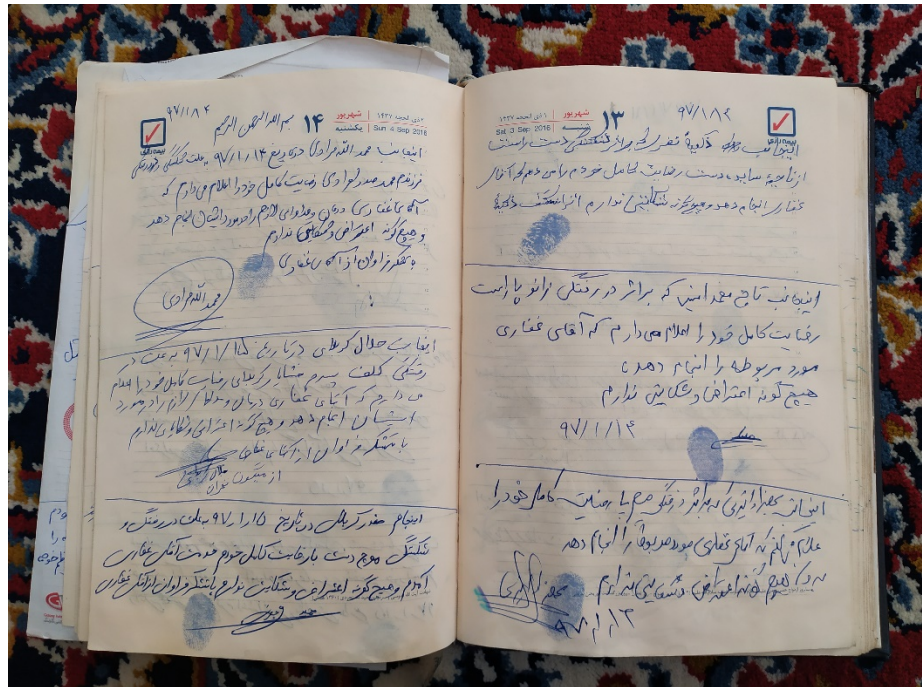 ۹۷/۱/۱۴
بیمه رازی
۱۳ شهریور
۱ ذی الحجه ۱۴۳۷
Sat 3 Sep 2016
شنبه
اینجانب ذکیهٔ بر اثر شکستگی دست راست
از ناحیهٔ دست رضایت کامل خودم را می دهم که آقای
غفاری انجام دهد و هیچگونه شکایتی ندارم اثر انگشت ذکیهٔ
اینجانب تاج محمد امینی که بر اثر در رفتگی زانو پا راست
رضایت کامل خود را اعلام می دارم که آقای غفاری
مورد مربوطه را انجام دهد و
هیچ گونه اعتراض و شکایتی ندارم
۹۷/۱/۱۴
اینجانب که بر اثر در رفتگی مچ پا رضایت کامل خود را
اعلام می کنم که آقای غفاری مورد مربوطه را انجام دهد
که هیچ گونه اعتراض و شکایتی ندارم
۹۷/۱/۱۴
۹۷/۱/۱۴
بسم الله الرحمن الرحیم
بیمه رازی
۱۴ شهریور
۲ ذی الحجه ۱۴۳۷
یکشنبه
Sun 4 Sep 2016
اینجانب محمد الله مرادی در تاریخ ۹۷/۱/۱۴ به علت شکستگی
فرزندم محمد مرادی رضایت کامل خود را اعلام می دارم که
آقای غفاری درمان و مداوای لازم را در مورد ایشان انجام دهد
و هیچ گونه اعتراض و شکایتی ندارم
با تشکر فراوان از آقای غفاری
محمد الله مرادی
اینجانب جلال کربلایی در تاریخ ۹۷/۱/۱۵ به علت در
رفتگی کتف پسرم کربلایی رضایت کامل خود را اعلام
می دارم که آقای غفاری درمان و را در مورد
ایشان انجام دهد و هیچ گونه اعتراض و شکایتی ندارم
با تشکر فراوان از آقای غفاری
از میگون تهران
اینجانب در تاریخ ۹۷/۱/۱۵ به علت در رفتگی و
شکستگی مچ دست با رضایت کامل خودم خدمت آقای غفاری
آمدم و هیچ گونه اعتراض و شکایت ندارم با تشکر فراوان از آقای غفاری